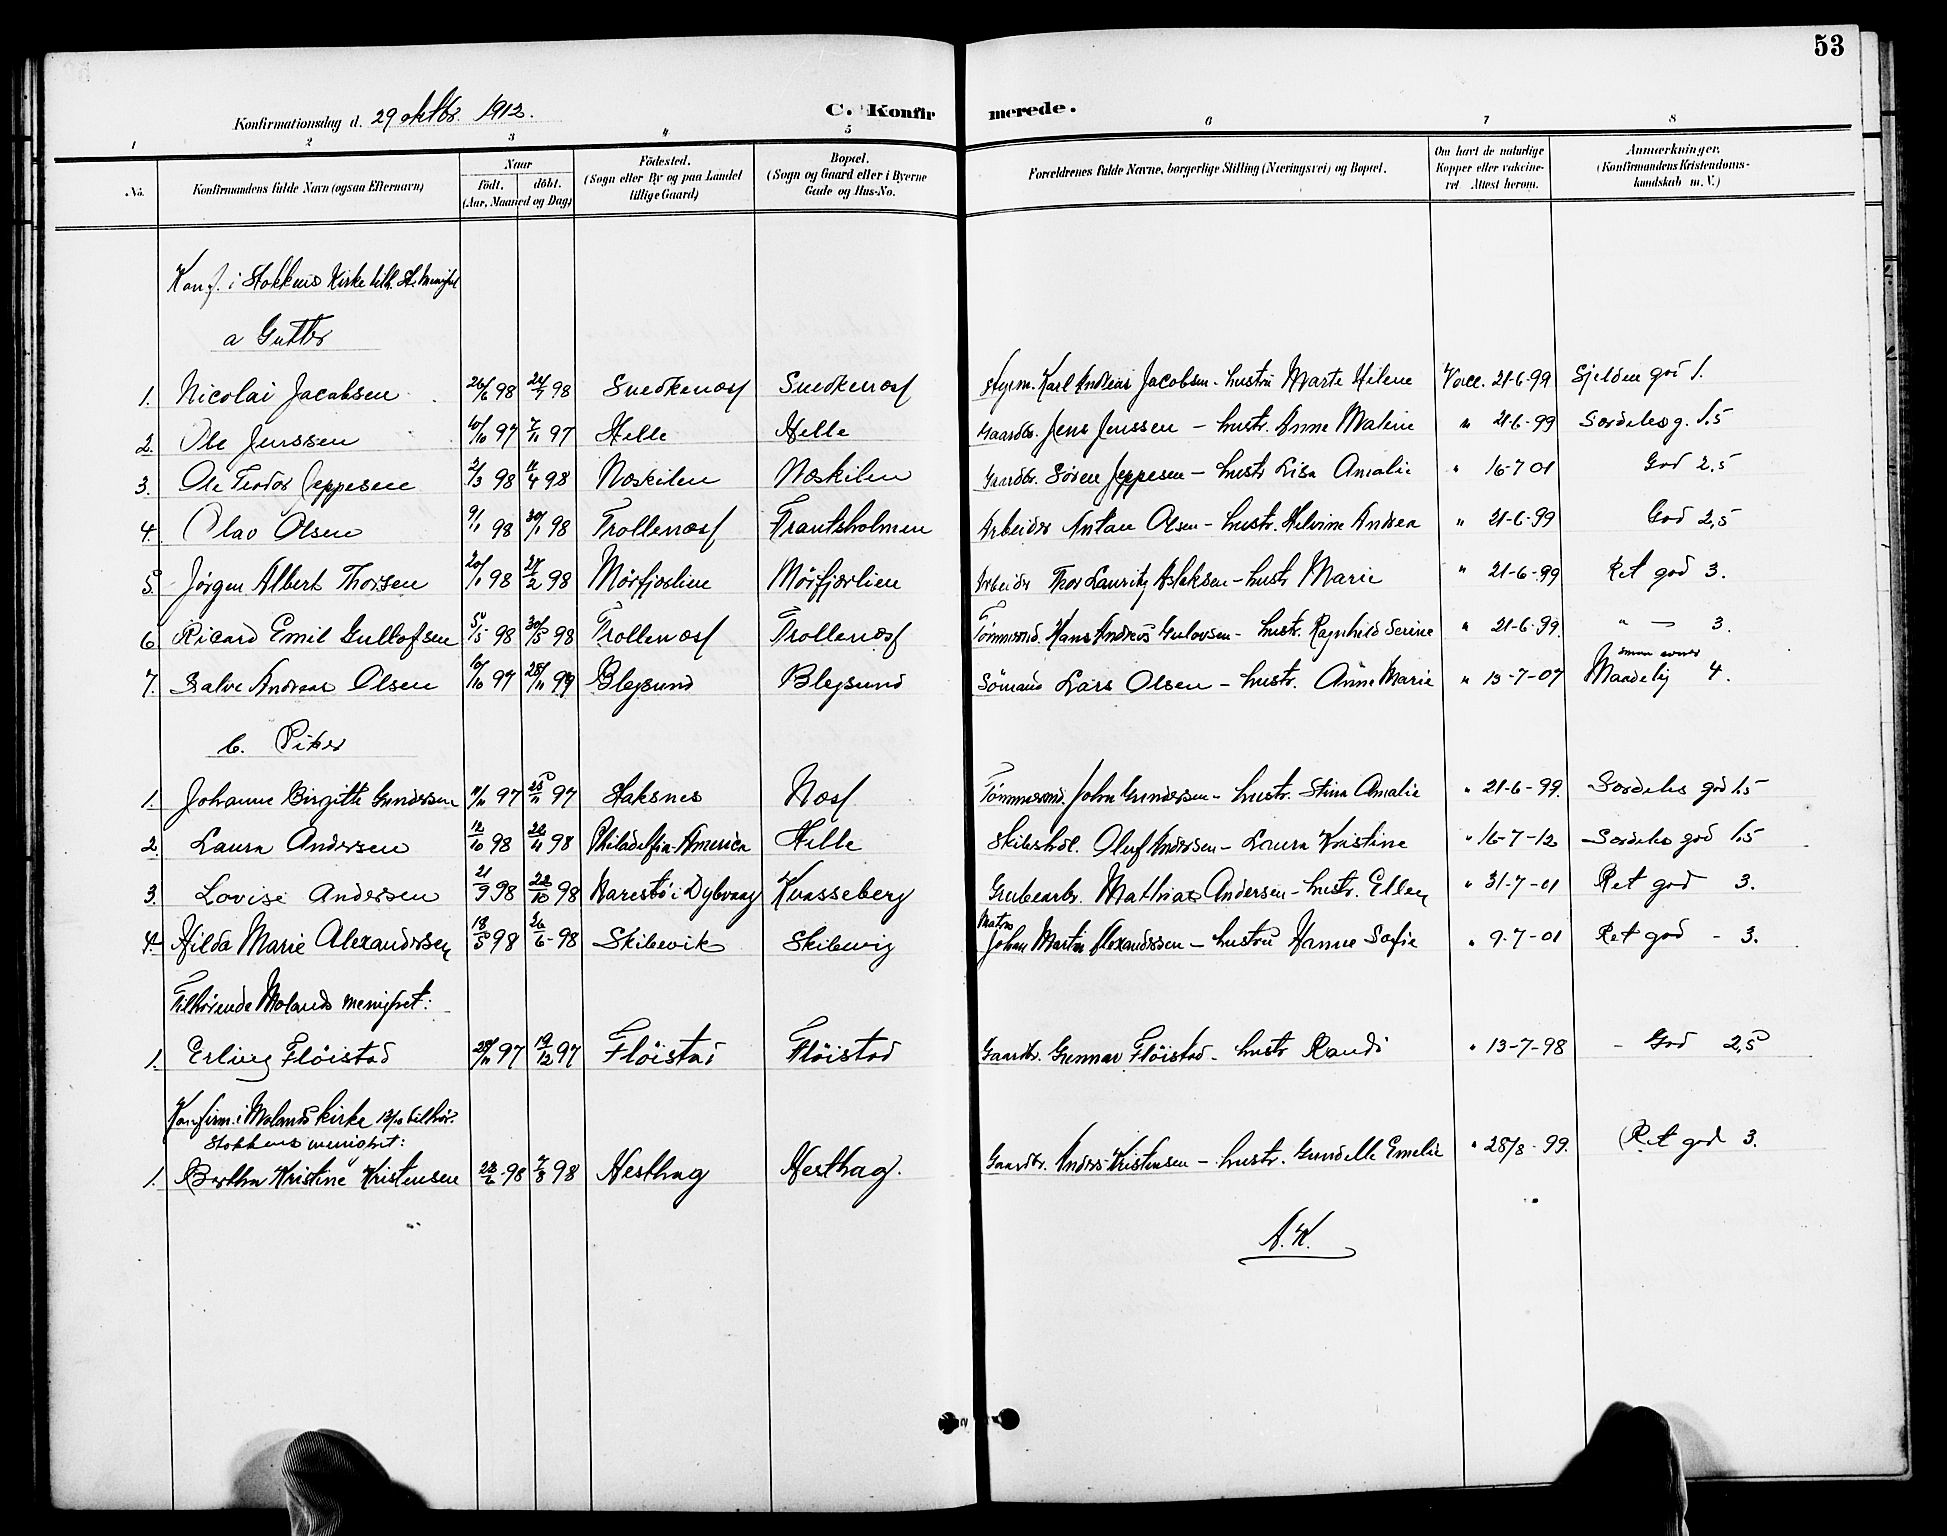 53
Konfirmationsdag d. 29 oktbr. 1912.
C. Konfirmerede.
1 2 3 4 5 6 7 8
No. Konfirmandens fulde Navn (ogsaa Efternavn) Naar födt. döbt. (Aar, Maaned og Dag) Födested. (Sogn eller By og paa Landet tillige Gaard) Bopæl. (Sogn og Gaard eller i Byerne Gade og Hus-No. Forældrenes fulde Navne, borgerlige Stilling (Næringsvei) og Bopæl. Om havt de naturlige Kopper eller vakcineret Attest herom. Anmærkninger. (Konfirmandens Kristendomskundskab m. V.)
Konf. i Stokkens Kirke tilh. St. Menighet
a Gutter
1. Nicolai Jacobsen 26/6 98 24/7 98 Snedkenæsf Snedkenæsf Styrm. Karl Andreas Jacobsen - hustru Marte Helene Vacc. 21-6-99 Sjelden god 1.
2. Ole Jenssen 10/10 97 7/11 97 Helle Helle Gaardbr. Jens Jenssen - hustr. Anne Malene " 21-6-99 Særdeles g. 1.5
3. Ole Teodor Jeppesen 2/3 98 11/4 98 Næskilen Næskilen Gaardbr. Sören Jeppesen - hustr Lisa Amalie " 16-7 01 God 2.5
4. Olav Olsen 9/1 98 30/1 98 Trollenæsf Frantsholmen Arbeider Antan Olsen - hustr. Helvine Andrea " 21-6-99 God 2,5
5. Jörgen Albert Thorsen 20/1 98 27/2 98 Mörfjærlien Mörfjærlien Arbeider Thor Lauritz Aslaksen - hustr Marie " 21-6-99 Ret god 3.
6. Ricard Emil Gullofsen 5/5 98 30/5 98 Trollenæsf Trollenæsf Tömmermd. Hans Andreas Gulovsen - hustr. Ragnhild Serine " 21-6-99. " — 3.
7. Salve Andreas Olsen 10/10 97 28/11 97 Blegsund Blegsund Sömand Lars Olsen - hustr. Anne Marie " 13-7-07 smaa evner Maadelig 4.
b. Piker
1. Johanne Birgitte Gundersen 11/11 97 25/11 97 Staksnes Næsf Tömmermd. John Gundersen - hustr. Stina Amalie " 21-6-99. Særdeles god 1.5
2. Laura Andersen 12/10 98 22/11 98 Philadelfia-America Helle Skibshdl. Oluf Andersen - Laura Kristine " 16-7-12 Særdeles god 1.5
3. Lovise Andersen 21/9 98 22/10 98 Narestö i Dybvaag Kvasseberg Grubearb. Mathias Andersen - hustr. Ellen " 31-7-01 Ret god 3.
4. Hilda Marie Alexandersen 18/5 98 26/6-98 Skibevik Skibevig Matros Johan Martin Alexandersen - hustru Hanne Sofie " 9-7-01 Ret god - 3.
Tilhörende Molands menighet:
1. Erling Flöistad 28/11 97 19/12 97 Flöistad Flöistad Gaardbr. Gunnar Flöistad - hustr Randi " 13-7-98 - God 2,5
Konfirm. i Molands kirke 13/10 tilhör.
Stokkens menighet:
1. Bertha Kristine Kristensen 22/6-98 7/8 98 Hesthag Hesthag. Gaardbr. Anders Kristensen - hustr. Gundelle Emelie " 28/8-99. Ret god 3.
A. K.